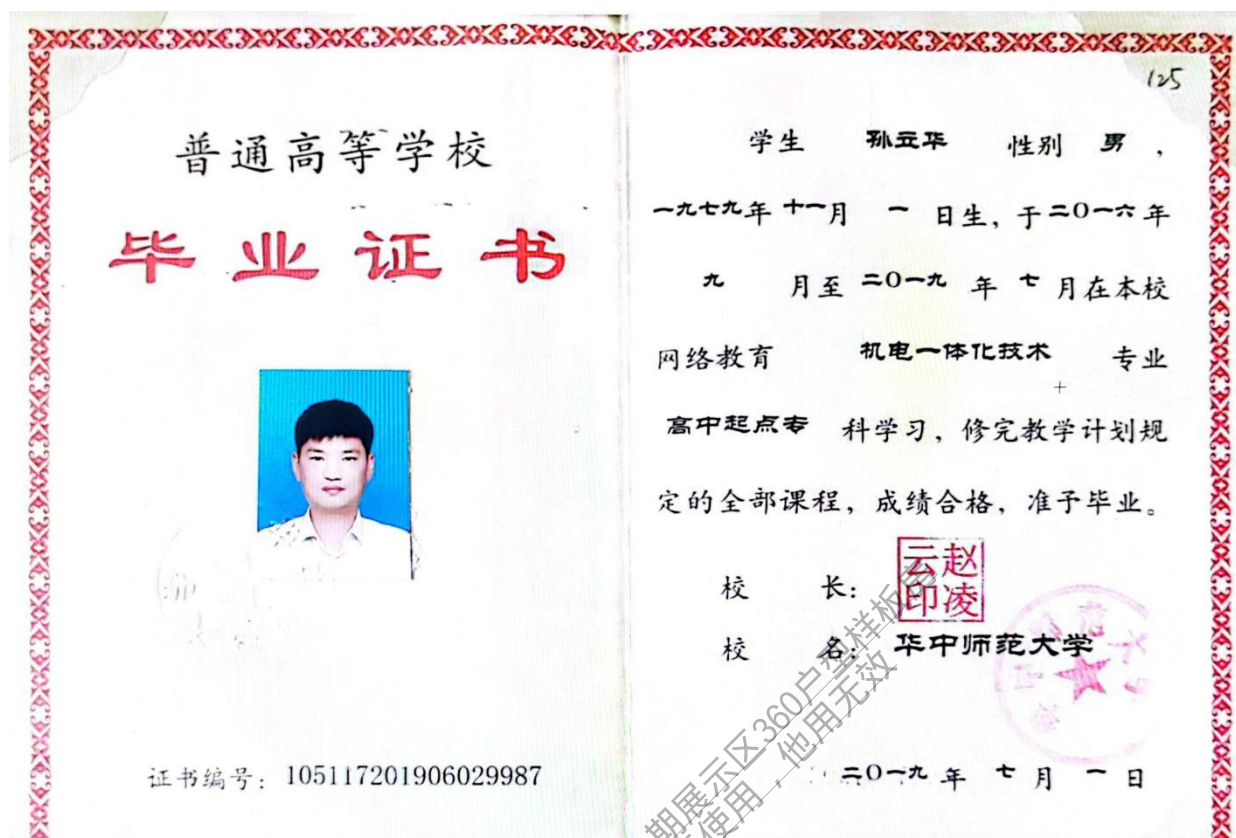 普通高等学校
毕业证书
证书编号：105117201906029987
125
学生 孙立华 性别 男，
一九七九年十一月 一 日生，于二〇一六年
九 月至 二〇一九 年 七 月在本校
网络教育 机电一体化技术 专业
高中起点专 科学习，修完教学计划规
定的全部课程，成绩合格，准予毕业。
校 长：
赵凌云印
校 名：华中师范大学
二〇一九 年 七 月 一 日
期展示区360户型样板房
使用，他用无效